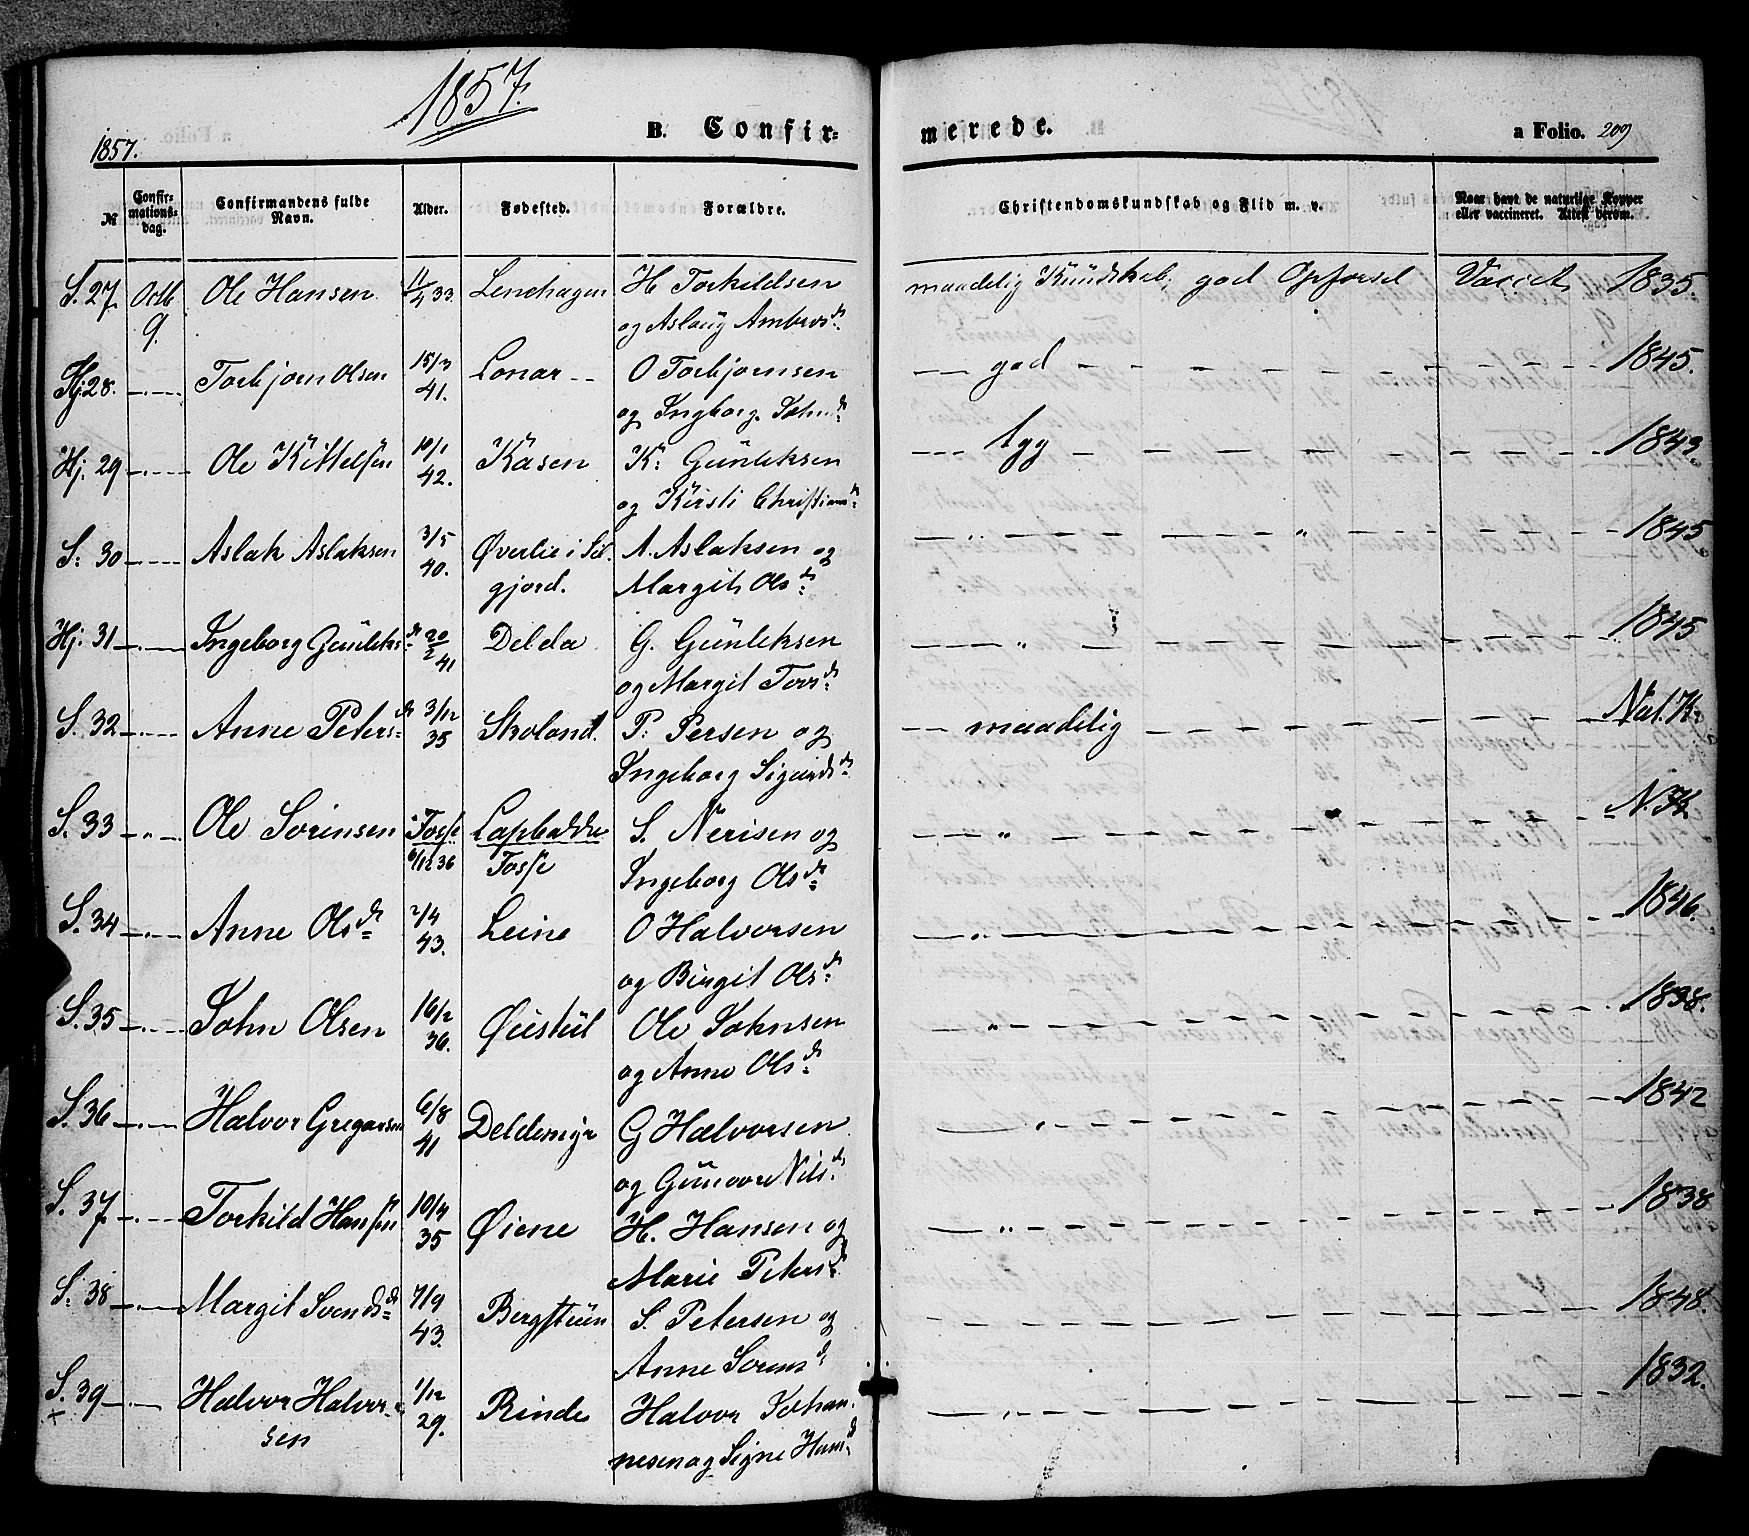 1857.
1857.
B. Confir=
merede.
a Folio. 209
№
Confir-
mations-
dag.
Confirmandens fulde
Navn.
Alder.
Fødested.
Forældre.
Christendomskundskab og Flid m. v.
Naar havt de naturlige Kopper
eller vaccineret. Attest derom.
S. 27 Octb 9. Ole Hansen 11/4 33. Lenehagen H Torkildsen
og Aslaug Ambros d:
maadelig Kundskab, god Opførsel 1835.
Hj: 28. Torbjørn Olsen 15/3 41. Lonar O Torbjørnsen
og Ingeborg Joh d:
god 1845.
Hj: 29 Ole Kittelsen 10/1 42. Kåsen K: Gunleksen
og Kirsti Christians d:
1843.
S: 30 Aslak Aslaksen 3/5 40. Øverlie i Sel
gjord. A. Aslaksen og
Margit Ols d:
" " 1845
Hj: 31 Ingeborg Gunleks d: 20/2 41 Delda G. Gunleksen
og Margit Tovs d:
" 1845
S. 32 Anne Peters d: 3/12 35 Skoland. P: Persen og
Ingeborg Sigurds d:
maadelig Nat. K.
S. 33 Ole Sørensen Fosse 6/12 36 Lapbaldre
Fosse S. Nerisen og
Ingeborg Ols d:
" N. K
S. 34 Anne Ols d: 2/4 43. Leine O Halvorsen
og Birgit Ols d:
" 1846.
S. 35 John Olsen 16/2 36. Øistul Ole Johnsen
og Anne Ols d:
" 1838.
S. 36 Halvor Gregarsen 6/8 41 Deldemyr G Halvorsen
og Gunvor Nils d:
" 1842
S. 37 Torkild Hansen 10/4 35 Øiene H. Hansen og
Marie Peters d:
" 1838
S: 38 Margit Svends d: 7/9 43. Bergstuen S. Petersen og
Anne Sørens d:
1848.
S. 39 Halvor Halvor-
sen 1/12 29. Rinde Halvor Johan-
nesen og Signe Hans d:
" 1832.